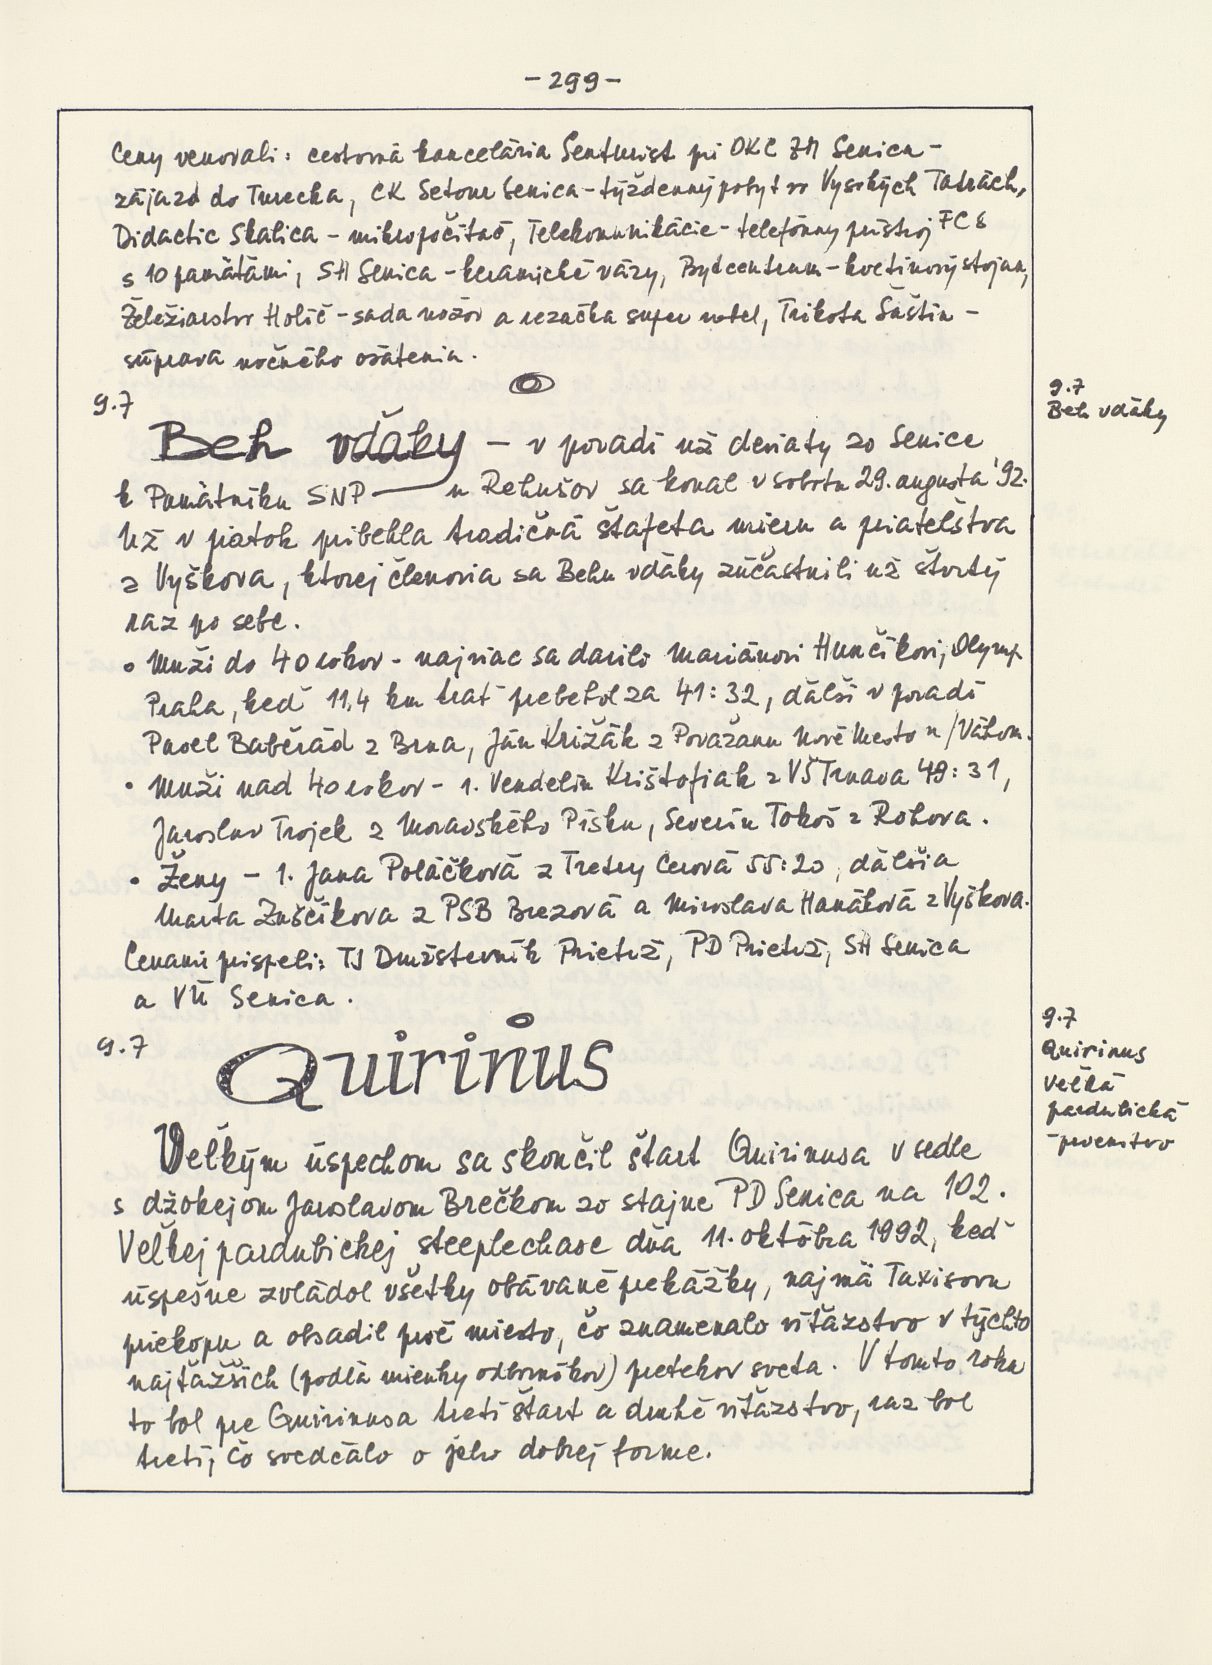 - 299 -
Ceny venovali: cestovná kancelária Senturist pri OKC ZM Senica -
zájazd do Turecka, CK Setour Senica - týždenný pobyt vo Vysokých Tatrách,
Didactic Skalica - mikropočítač, Telekomunikácie - telefónny prístroj
s 10 pamätámi, SH Senica - keramické vázy, Bytcentrum - kvetinový stojan,
Želežiarstvo Holíč - sada nožov a rezačka super notel, Trikota Šaštín -
súprava nočného ošatenia.
9.7
Beh vďaky - v poradí už deviaty zo Senice
k Pamätníku SNP u Rehušov sa konal v sobotu 29. augusta '92.
Už v piatok pribehla tradičná štafeta mieru a priatelstva
z Vyškova, ktorej členovia sa Behu vďaky zúčastnili už štvrtý
raz po sebe.
• Muži do 40 rokov - najviac sa darilo Mariánovi Hunčíkovi, Olymp
Praha, keď 11,4 km trať prebehol za 41:32, ďálší v poradí
Pavel Baběrád z Brna, Ján Križák z Považanu Nové Mesto n/Váhom.
• Muži nad 40 rokov - 1. Vendelín Krištofiak z VŠ Trnava 49:31,
Jaroslav Trojek z Moravského Písku, Severín Tokoš z Rohova.
• Ženy - 1. Jana Poláčková z Tretry Cerová 55:20, ďálšia
Marta Zuščíkova z PSB Brezová a Miroslava Hanáková z Vyškova.
Cenami prispeli: TJ Družstevník Prietrž, PD Prietrž, SH Senica
a VÚ Senica.
9.7
Quirinus
Veľkým úspechom sa skončil štart Quirinusa v sedle
s džokejom Jaroslavom Brečkom zo stajne PD Senica na 102.
Veľkej pardubickej steeplechase dňa 11. októbra 1992, keď
úspešne zvládol všetky obávané prekážky, najmä Taxisovu
priekopu a obsadil prvé miesto, čo znamenalo víťazstvo v týchto
najťažších (podľa mienky odborníkov) pretekov sveta. V tomto roku
to bol pre Quirinusa tretí štart a druhé víťazstvo, raz bol
tretí, čo svedčálo o jeho dobrej forme.
9.7
Beh vďáky
9.7
Quirinus
Veľká
pardubická
- prvenstvo